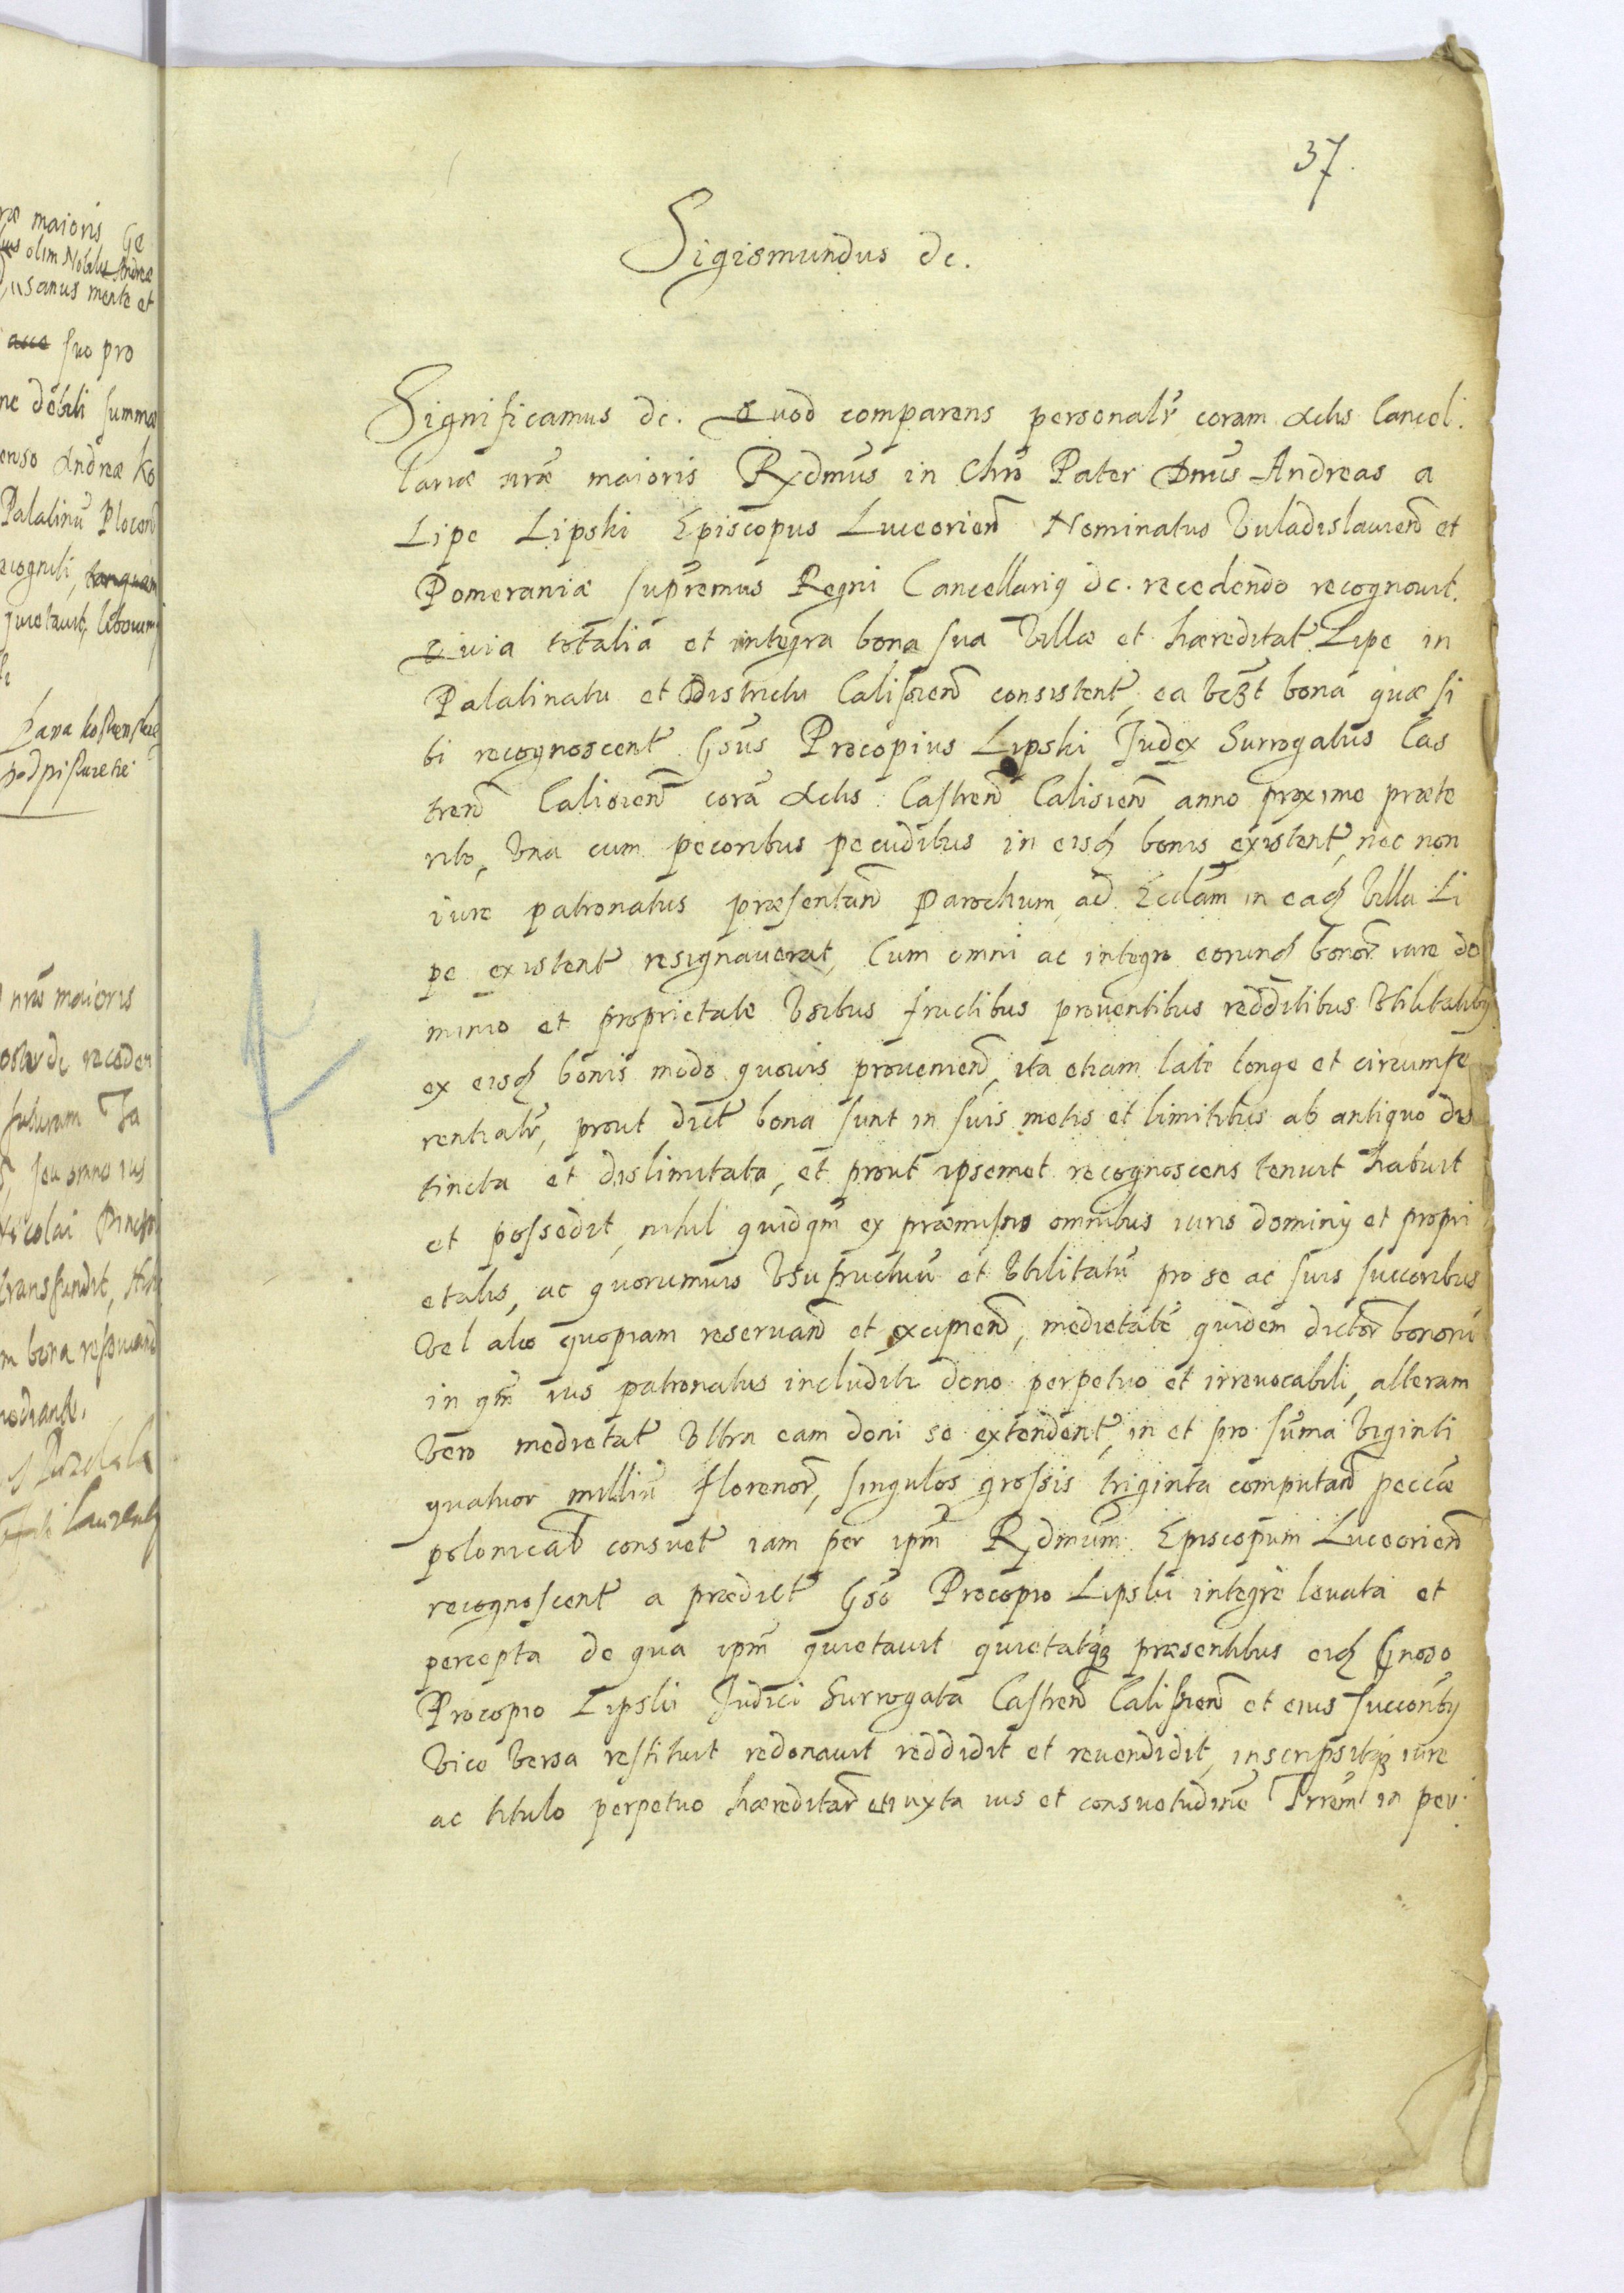 37.
Sigismundus etc.
Significamus etc. Quod comparens personalr̃ coram Actis Cancel.
lariæ nr̃æ maioris Rx̃dmus in Chrõ Pater Dnus Andreas a
Lipe Lipski Episcopus Luceorieñ Nominatus Vuladislauieñ et
Pomeraniæ supremus Regni Cancellarius etc. recedendo recognouit.
Quia totalia et integra bona sua Villæ et hæreditat̃ Lipe in
Palatinatu et Districtu Calissieñ consistent̃, ea vc̃ꝫt bona quæ si
bi recognoscent̃ Gsus Procopius Lipski Judex Surrogatus Cas
treñ Calisieñ corã Actis Castreñ Calisieñ anno proxime præte
rito, Vna cum pecoribus pecudibus in eisđ bonis existent̃, nec non
iure patronatus præsentanđ Parochum ad Ecclam in eađ Villa Li
pe existent̃ resignauerat, Cum omni ac integro eorunđ bonor̃ iure do
minio et proprietate Vsibus fructibus prouentibus redditibus Vtilitatibus
ex eisđ bonis modo quouis prouenienđ, ita etiam late longe et circumfe
rentialr̃, prout dict̃ bona sunt in suis metis et limitibus ab antiquo dis
tincta et dislimitata, et prout ipsemet recognoscens tenuit habuit
et possedit, nihil quidqm̃ ex præmissis omnibus iuris dominij et propri
etatis, ac quorumuis Vsufructuũ et Vtilitatũ pro se ac suis succoribus
Vel alio quopiam reseruanđ et excipienđ, medietatẽ quidem dictor̃ bonorũ
in qm̃ ius patronatus includitr dono perpetuo et irreuocabili, alteram
Vero medietat̃ Vltra eam doni se extendent̃, in et pro sum̃a Viginti
quatuor milliũ florenor̃, singulos grossis triginta computanđ peccæ
polonicał consuet̃ iam per ipm̃ Rx̃dmum Episcopum Luceorieñ
recognoscent̃ a prædict̃ Gso Procopio Lipski integrè leuata et
percepta de qua ipm̃ quietauit quietatqꝫ præsentibus eiđ Gnoso
Procopio Lipski Judici Surrogato Castreñ Calissieñ et eius succoribus
Vice Versa restituit redonauit reddidit et reuendidit, inscripsitqꝫ iure
ac titulo perpetuo hæreditar̃ et iuxta ius et consuetudinẽ Trrem̃ in per.